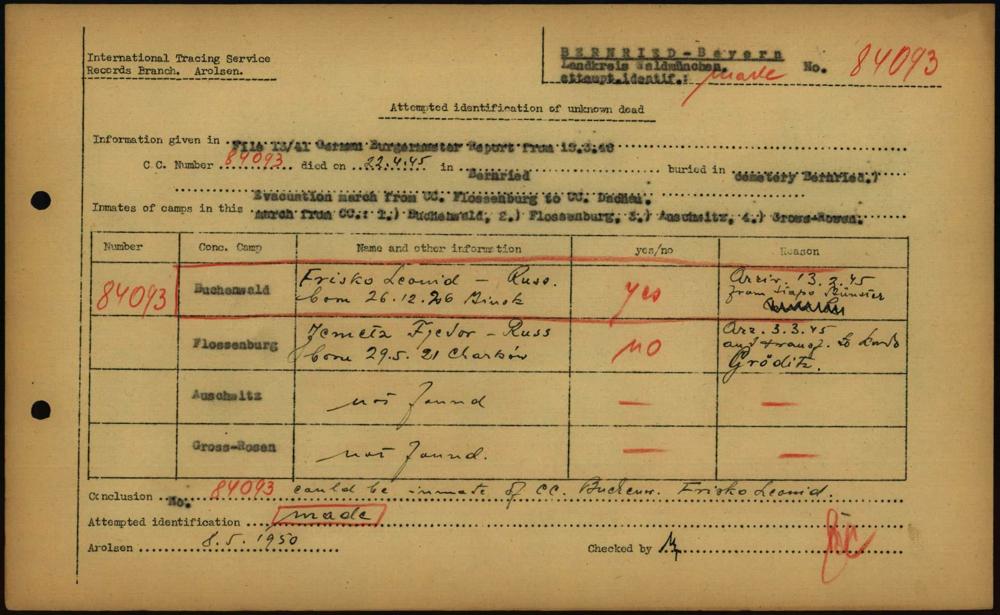 International Tracing Service
Records Branch. Arolsen.
BERNRIED-Bayern
Landkreis Waldmünchen.
attempt.identif.: made No. 84093
Attempted identification of unknown dead
Information given in File 13/41 German Burgermaster Report from
C.C. Number 84093 died on 22.4.45 in Bernried buried in cemetery Bernried.
Evacuation march from CC. Flossenburg to CC. Dachau.
Inmates of camps in this march from CC.: 1.) Buchenwald, 2.) Flossenburg, 3.) Auschwitz, 4.) Gross-Rosen.
Number Conc. Camp Name and other information yes/no Reason
84093 Buchenwald Frisko Leonid - Russ. yes Arriv. 13.2.45
born 26.12.26 Minsk from Stapo Münster
Flossenburg Zemetz Fjedor - Russ no Arr. 3.3.45
born 29.5.21 Charków and transf. to
Gröditz.
Auschwitz not found — —
Gross-Rosen not found. — —
Conclusion No. 84093 could be inmate of CC. Buchenw. Frisko Leonid.
Attempted identification made
Arolsen 8.5.1950 Checked by